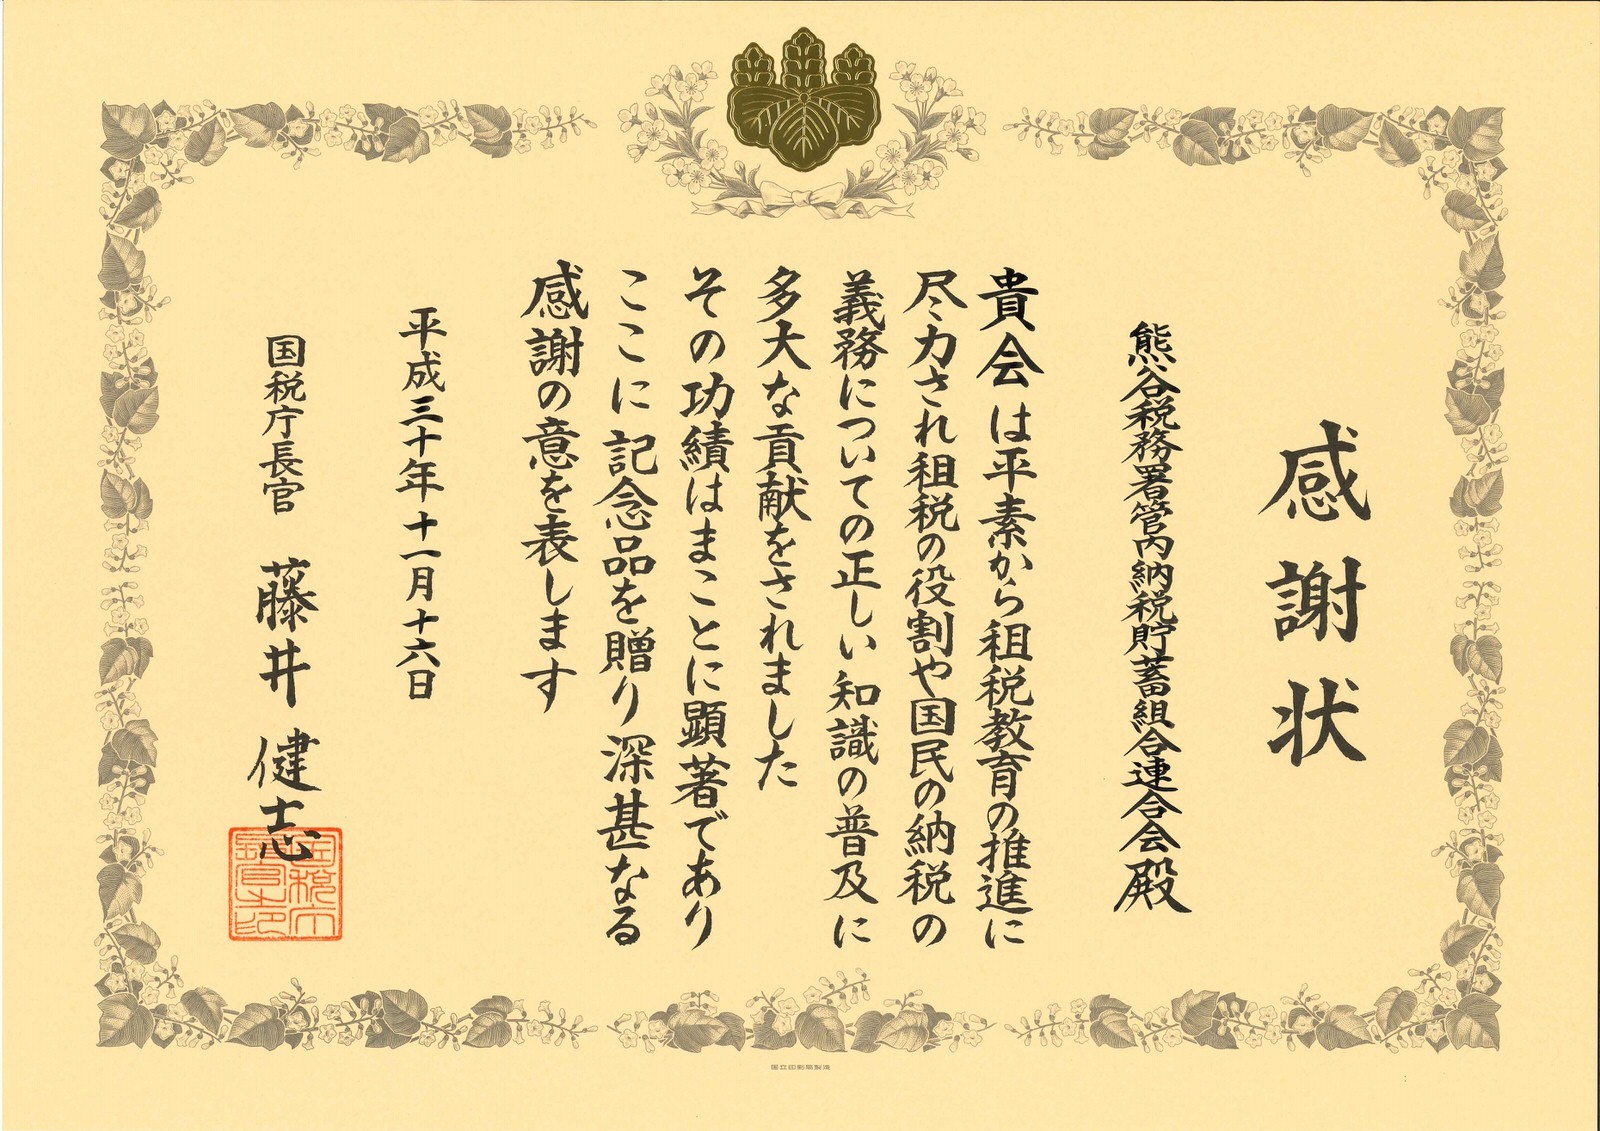 感謝状
熊谷税務署管内納税貯蓄組合連合会殿
貴会は平素から租税教育の推進に
尽力され租税の役割や国民の納税の
義務についての正しい知識の普及に
多大な貢献をされました
その功績はまことに顕著であり
ここに記念品を贈り深甚なる
感謝の意を表します
平成三十年十一月十六日
国税庁長官 藤井健志
国税庁長官之印
国立印刷局製造